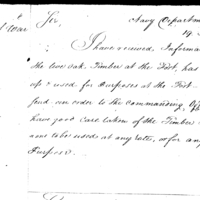 Sir,
Navy Departmen
19
I have received Informa
the live oak Timber at the Port, has
up & used for Purposes at the Port
send an order to the commanding Offi
have good care taken of the Timber
and to be used at any rate, or for any
Purpose.